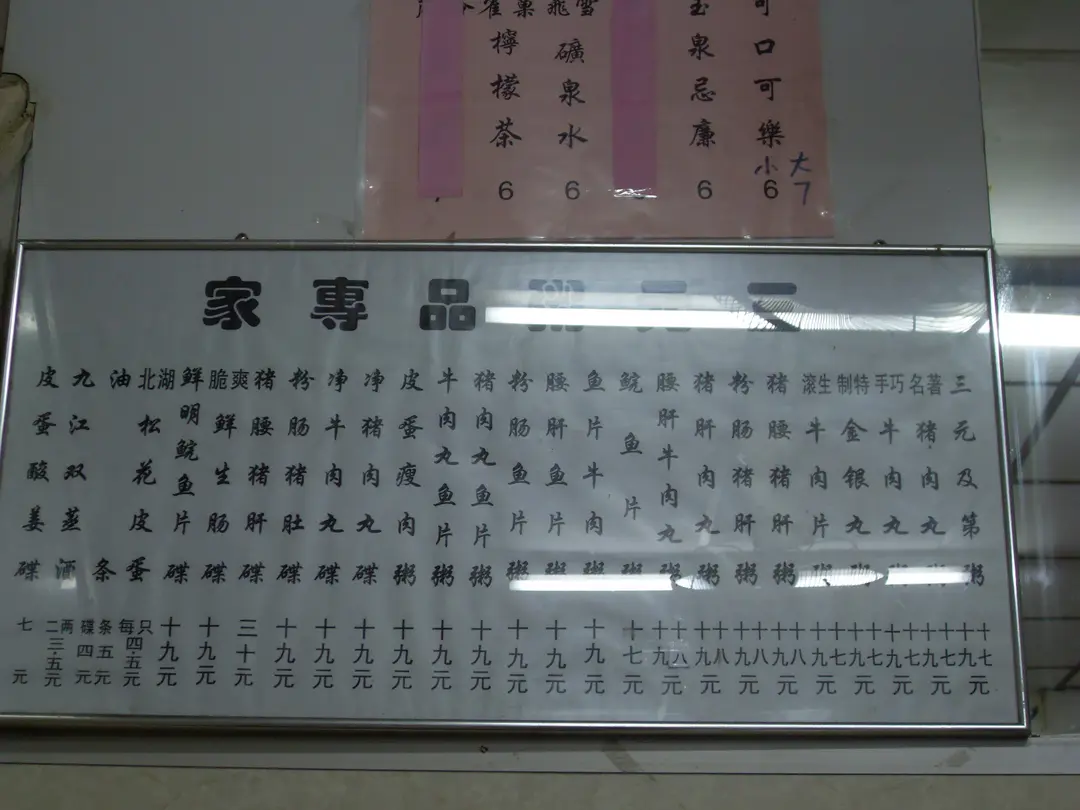 可口可樂 小6 大7
玉泉忌廉 6
飛雪礦泉水 6
雀巢檸檬茶 6
三元粥品專家
三元及第粥 十七 十九元
著名猪肉丸粥 十七 十九元
巧手牛肉丸粥 十七 十九元
特制金银丸粥 十七 十九元
生滚牛肉片粥 十七 十九元
猪腰猪肝粥 十八 十九元
粉肠猪肝粥 十八 十九元
猪肝肉丸粥 十八 十九元
腰肝牛肉丸粥 十八 十九元
鲩鱼片粥 十七元
鱼片牛肉粥 十九元
腰肝鱼片粥 十九元
粉肠鱼片粥 十九元
猪肉丸鱼片粥 十九元
牛肉丸鱼片粥 十九元
皮蛋瘦肉粥 十九元
净猪肉丸碟 十九元
净牛肉丸碟 十九元
粉肠猪肚碟 十九元
猪腰猪肝碟 三十元
爽脆鲜生肠碟 十九元
鲜明鲩鱼片碟 十九元
湖北松花皮蛋 每只四·五元
油条 条五元 碟四元
九江双蒸酒 二两三·五元
皮蛋酸姜碟 七元